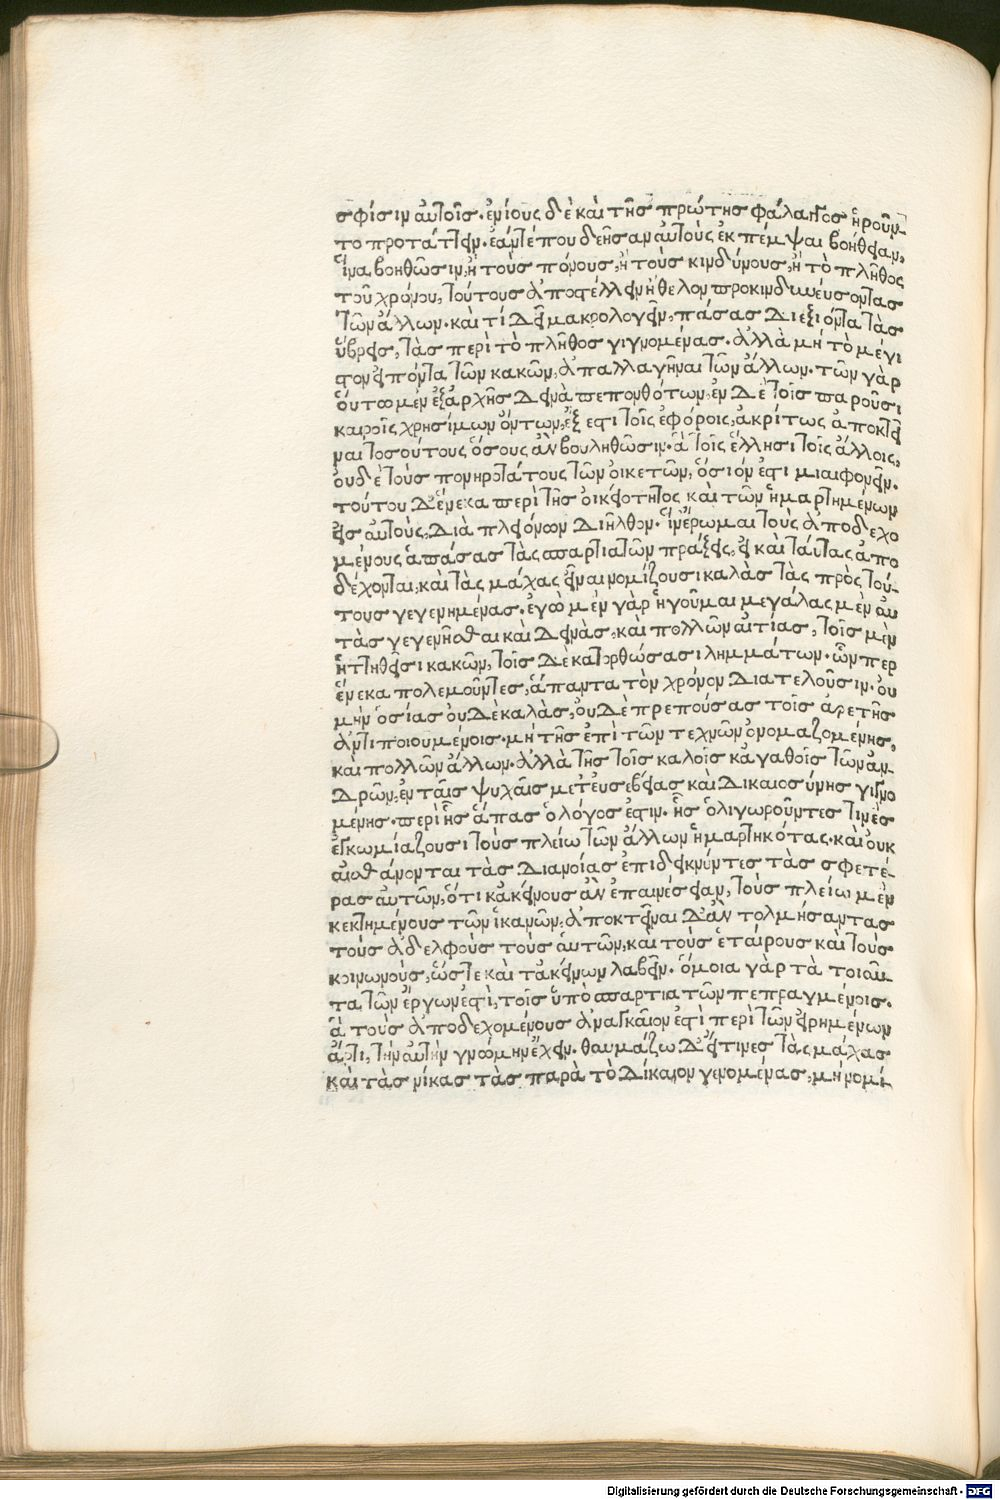 σφίσιν αὐτοῖς. ἐνίους δὲ καὶ τῆς πρώτης φάλαγγος ἡροῦν-
το προτάττειν. ἐάν τέ που δεῆσαν αὐτοὺς ἐκπέμψαι βοήθειαν,
ἵνα βοηθῶσιν, ἢ τοὺς πόνους, ἢ τοὺς κινδύνους, ἢ τὸ πλῆθος
τοῦ χρόνου, τούτους ἀποστέλλειν ἤθελον προκινδυνεύσοντας
τῶν ἄλλων. καὶ τί δεῖ μακρολογεῖν, πάσας διεξιόντα τὰς
ὕβρεις, τὰς περὶ τὸ πλῆθος γιγνομένας. ἀλλὰ μὴ τὸ μέγι
στον εἰπόντα τῶν κακῶν, ἀπαλλαγῆναι τῶν ἄλλων. τῶν γὰρ
οὕτω μὲν ἐξ ἀρχῆς δεινὰ πεπονθότων, ἐν δὲ τοῖς παροῦσι
καιροῖς χρησίμων ὄντων, ἔξεστι τοῖς ἐφόροις, ἀκρίτως ἀποκτεῖ
ναι τοσούτους ὅσους ἂν βουληθῶσιν. ἃ τοῖς ἕλλησι τοῖς ἄλλοις,
οὐδὲ τοὺς πονηροτάτους τῶν οἰκετῶν, ὅσιόν ἐστι μιαιφονεῖν.
τούτου δ' ἕνεκα περὶ τῆς οἰκειότητος καὶ τῶν ἡμαρτημένων
εἰς αὐτοὺς, διὰ πλειόνων διῆλθον. ἵν' ἔρωμαι τοὺς ἀποδεχο
μένους ἁπάσας τὰς σπαρτιατῶν πράξεις, εἰ καὶ ταύτας ἀπο
δέχονται, καὶ τὰς μάχας εἶναι νομίζουσι καλὰς τὰς πρὸς τού-
τους γεγενημένας. ἐγὼ μὲν γὰρ ἡγοῦμαι μεγάλας μὲν αὐ
τὰς γεγενῆσθαι καὶ δεινὰς, καὶ πολλῶν αἰτίας, τοῖς μὲν
ἡττηθεῖσι κακῶν, τοῖς δὲ κατορθώσασι λημμάτων. ὧνπερ
ἕνεκα πολεμοῦντες, ἅπαντα τὸν χρόνον διατελοῦσιν. οὐ
μὴν ὁσίας οὐδὲ καλὰς, οὐδὲ πρεπούσας τοῖς ἀρετῆς
ἀντιποιουμένοις. μὴ τῆς ἐπὶ τῶν τεχνῶν ὀνομαζομένης,
καὶ πολλῶν ἄλλων. ἀλλὰ τῆς τοῖς καλοῖς κἀγαθοῖς τῶν ἀν-
δρῶν, ἐν ταῖς ψυχαῖς μετ' εὐσεβείας καὶ δικαιοσύνης γιγνο
μένης. περὶ ἧς ἅπας ὁ λόγος ἐστιν. ἧς ὀλιγωροῦντες τινὲς
ἐγκωμιάζουσι τοὺς πλείω τῶν ἄλλων ἡμαρτηκότας. καὶ οὐκ
αἰσθάνονται τὰς διανοίας ἐπιδεικνύντες τὰς σφετέ-
ρας αὐτῶν, ὅτι κἀκείνους ἂν ἐπαινέσειαν, τοὺς πλείω μὲν
κεκτημένους τῶν ἱκανῶν, ἀποκτεῖναι δ' ἂν τολμήσαντας
τοὺς ἀδελφοὺς τοὺς αὑτῶν, καὶ τοὺς ἑταίρους καὶ τοὺς
κοινωνοὺς, ὥστε καὶ τἀκείνων λαβεῖν. ὅμοια γὰρ τὰ τοιαῦ-
τα τῶν ἔργων ἐστὶ, τοῖς ὑπὸ σπαρτιατῶν πεπραγμένοις.
ἃ τοὺς ἀποδεχομένους ἀναγκαῖον ἐστὶ περὶ τῶν εἰρημένων
ἄρτι, τὴν αὐτὴν γνώμην ἔχειν. θαυμάζω δ' εἴ τινες τὰς μάχας
καὶ τὰς νίκας τὰς παρὰ τὸ δίκαιον γενομένας, μὴ νομί-
Digitalisierung gefördert durch die Deutsche Forschungsgemeinschaft - DFG